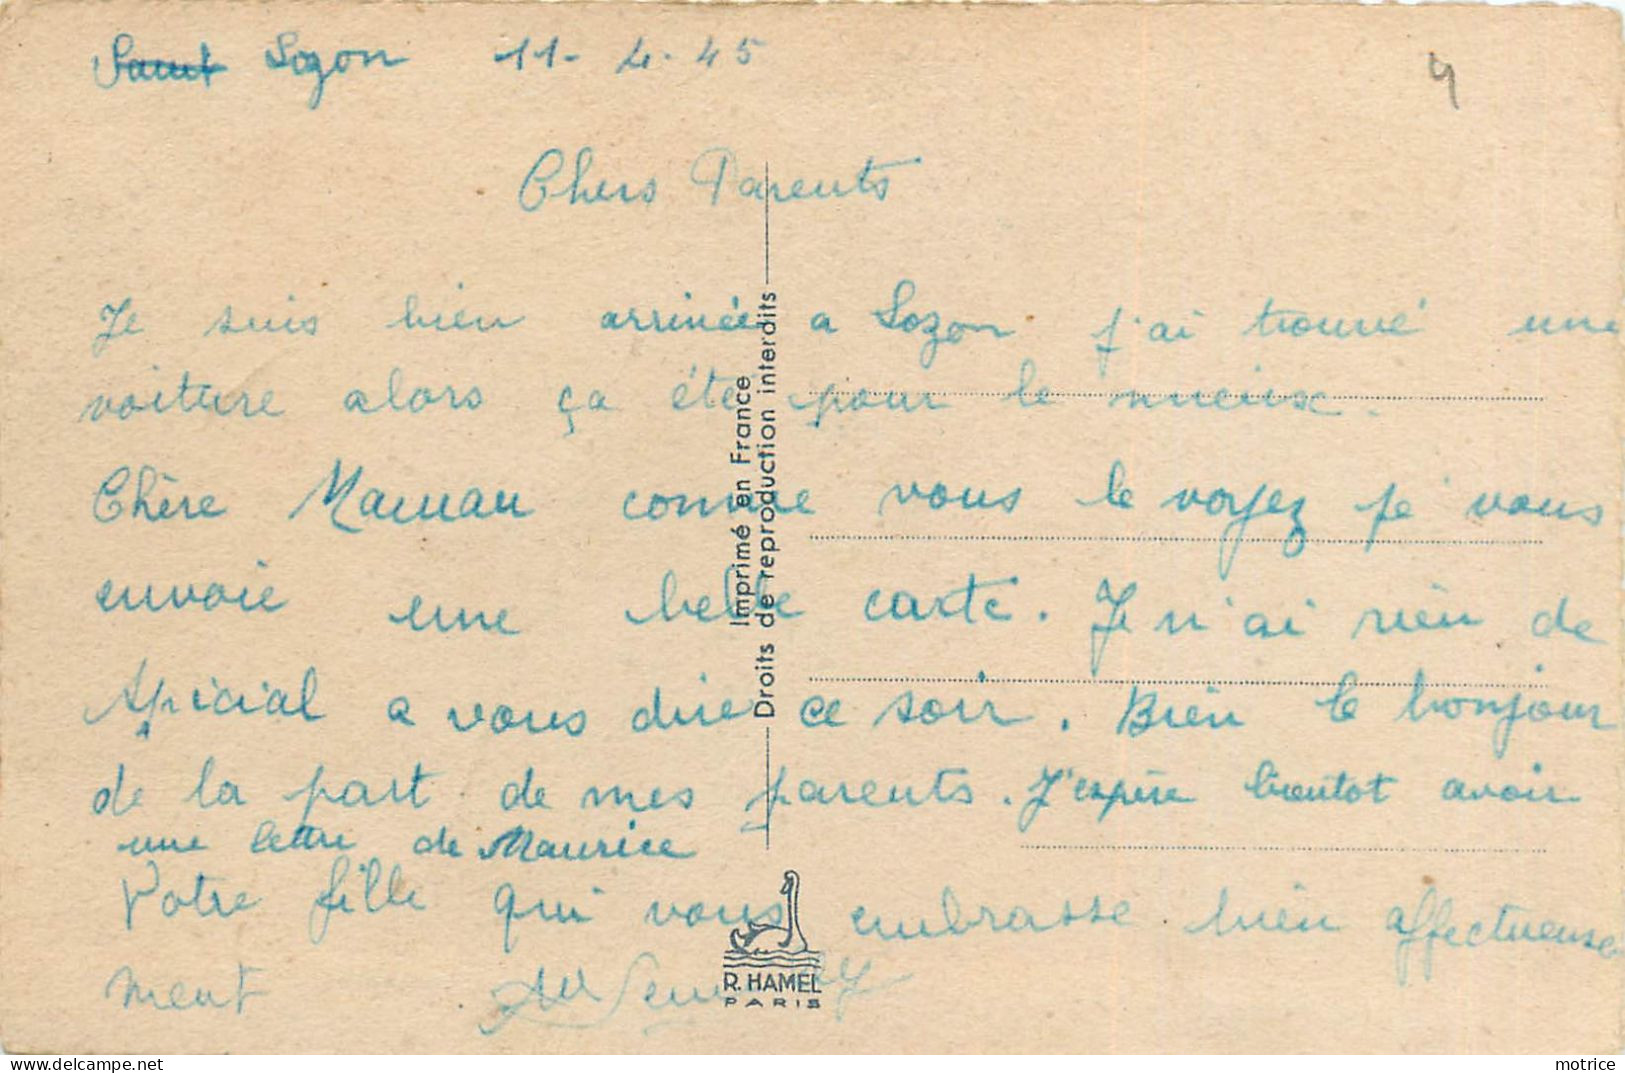 Saint Sozon 11-4-45
4
Chers Parents
Je suis bien arrivée a Sozon j'ai trouvé une
voiture alors ça été pour le mieux.
Chère Maman comme vous le voyez je vous
envoie une belle carte. Je n'ai rien de
spicial a vous dire ce soir. Bien le bonjour
de la part de mes parents. J'espère bientot avoir
une lettre de Maurice
Votre fille qui vous embrasse bien affectueuse
ment
Imprimé en France
Droits de reproduction interdits
R. HAMEL
PARIS
delcampe.net
motrice